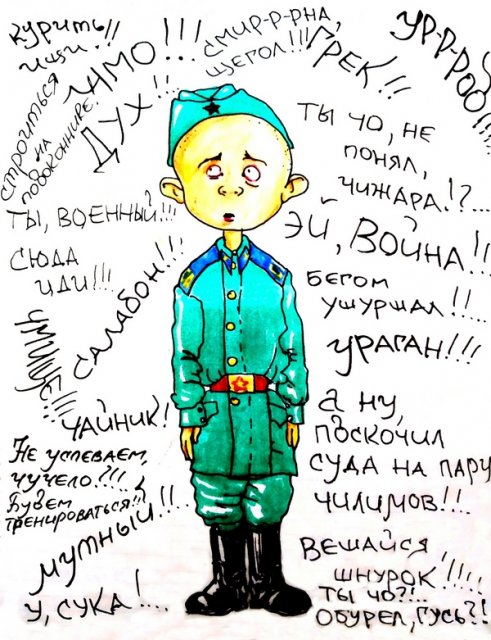 курить
ищи..!!
ЧМО!!!
ДУХ!!!
строиться
на
подоконнике!
СМИР-Р-РНА,
ЩЕГОЛ!!!
ГРЕК!!
УР-Р-РОД!!!
ТЫ ЧО, НЕ
ПОНЯЛ,
ЧИЖАРА!?...
ТЫ, ВОЕННЫЙ!!!
СЮДА
ИДИ!!!
САЛАБОН!!!
ЭЙ, ВОЙНА!!!
БЕГОМ
УШУРШАЛ!!...
УРАГАН!!!
ЧАЙНИК!
НЕ УСПЕВАЕМ,
ЧУЧЕЛО?!!!
БУДЕМ
ТРЕНИРОВАТЬСЯ!!!
МУТНЫЙ!!!
У, СУКА!...
А НУ,
ПОСКОЧИЛ
СУДА НА ПАРУ
ЧИЛИМОВ!!...
ВЕШАЙСЯ,
ШНУРОК!!!!
ТЫ ЧО?!..
ОБУРЕЛ, ГУСЬ?!